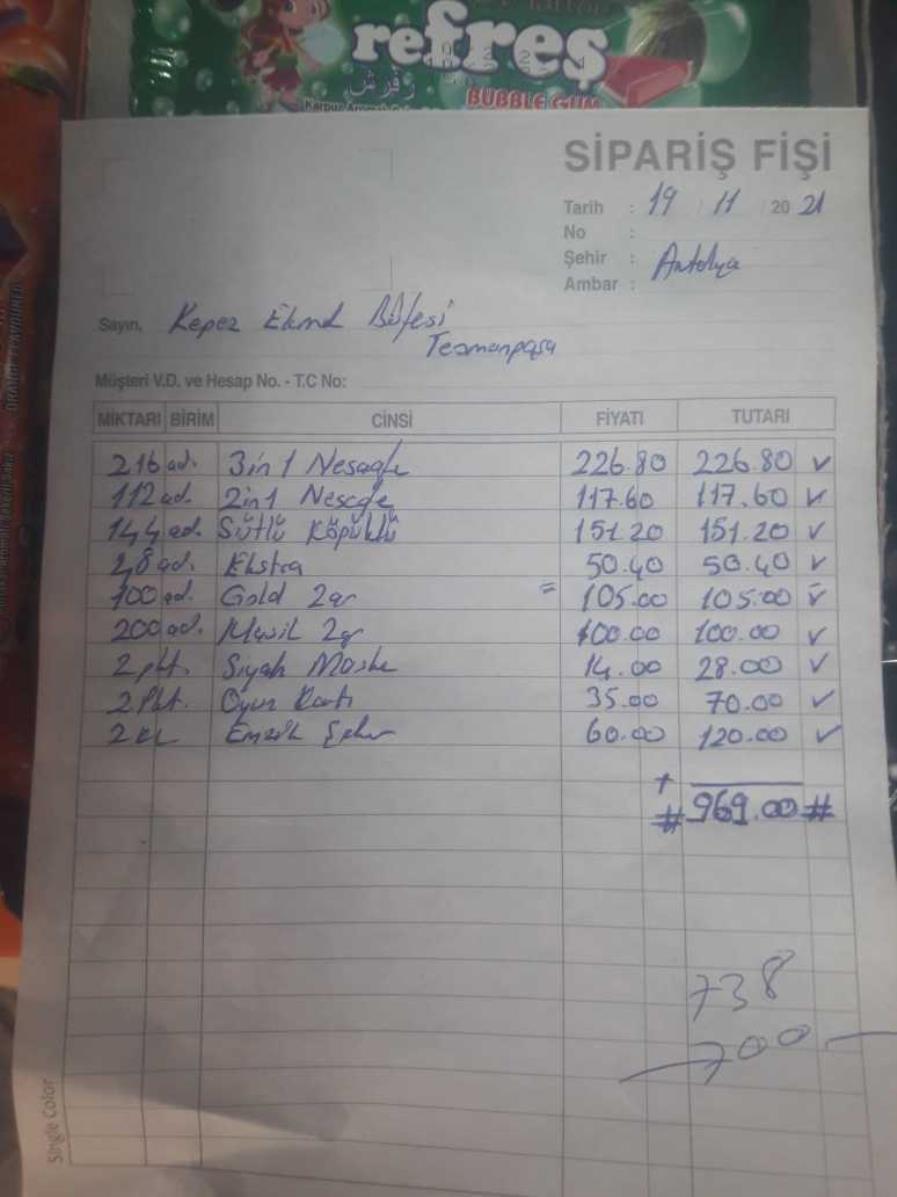 refreş
رفرش
BUBBLE GUM
SİPARİŞ FİŞİ
Tarih : 19 / 11 / 20 21
No :
Şehir : Antalya
Ambar :
Sayın, Kepez Ekmek Büfesi
Teomanpaşa
Müşteri V.D. ve Hesap No. - T.C No:
MİKTARI BİRİM CİNSİ FİYATI TUTARI
216 ad. 3in1 Nescafe 226.80 226.80 ✓
112 ad. 2in1 Nescafe 117.60 117.60 ✓
144 ad. Sütlü Köpüklü 151.20 151.20 ✓
48 ad. Ekstra 50.40 50.40 ✓
100 ad. Gold 2gr = 105.00 105.00 ✓
200 ad. 2gr 100.00 100.00 ✓
2 pkt. Siyah Maske 14.00 28.00 ✓
2 Pkt. Oyun Kartı 35.00 70.00 ✓
2 Emzik Şeker 60.00 120.00 ✓
+
# 969.00 #
738
700
Single Color